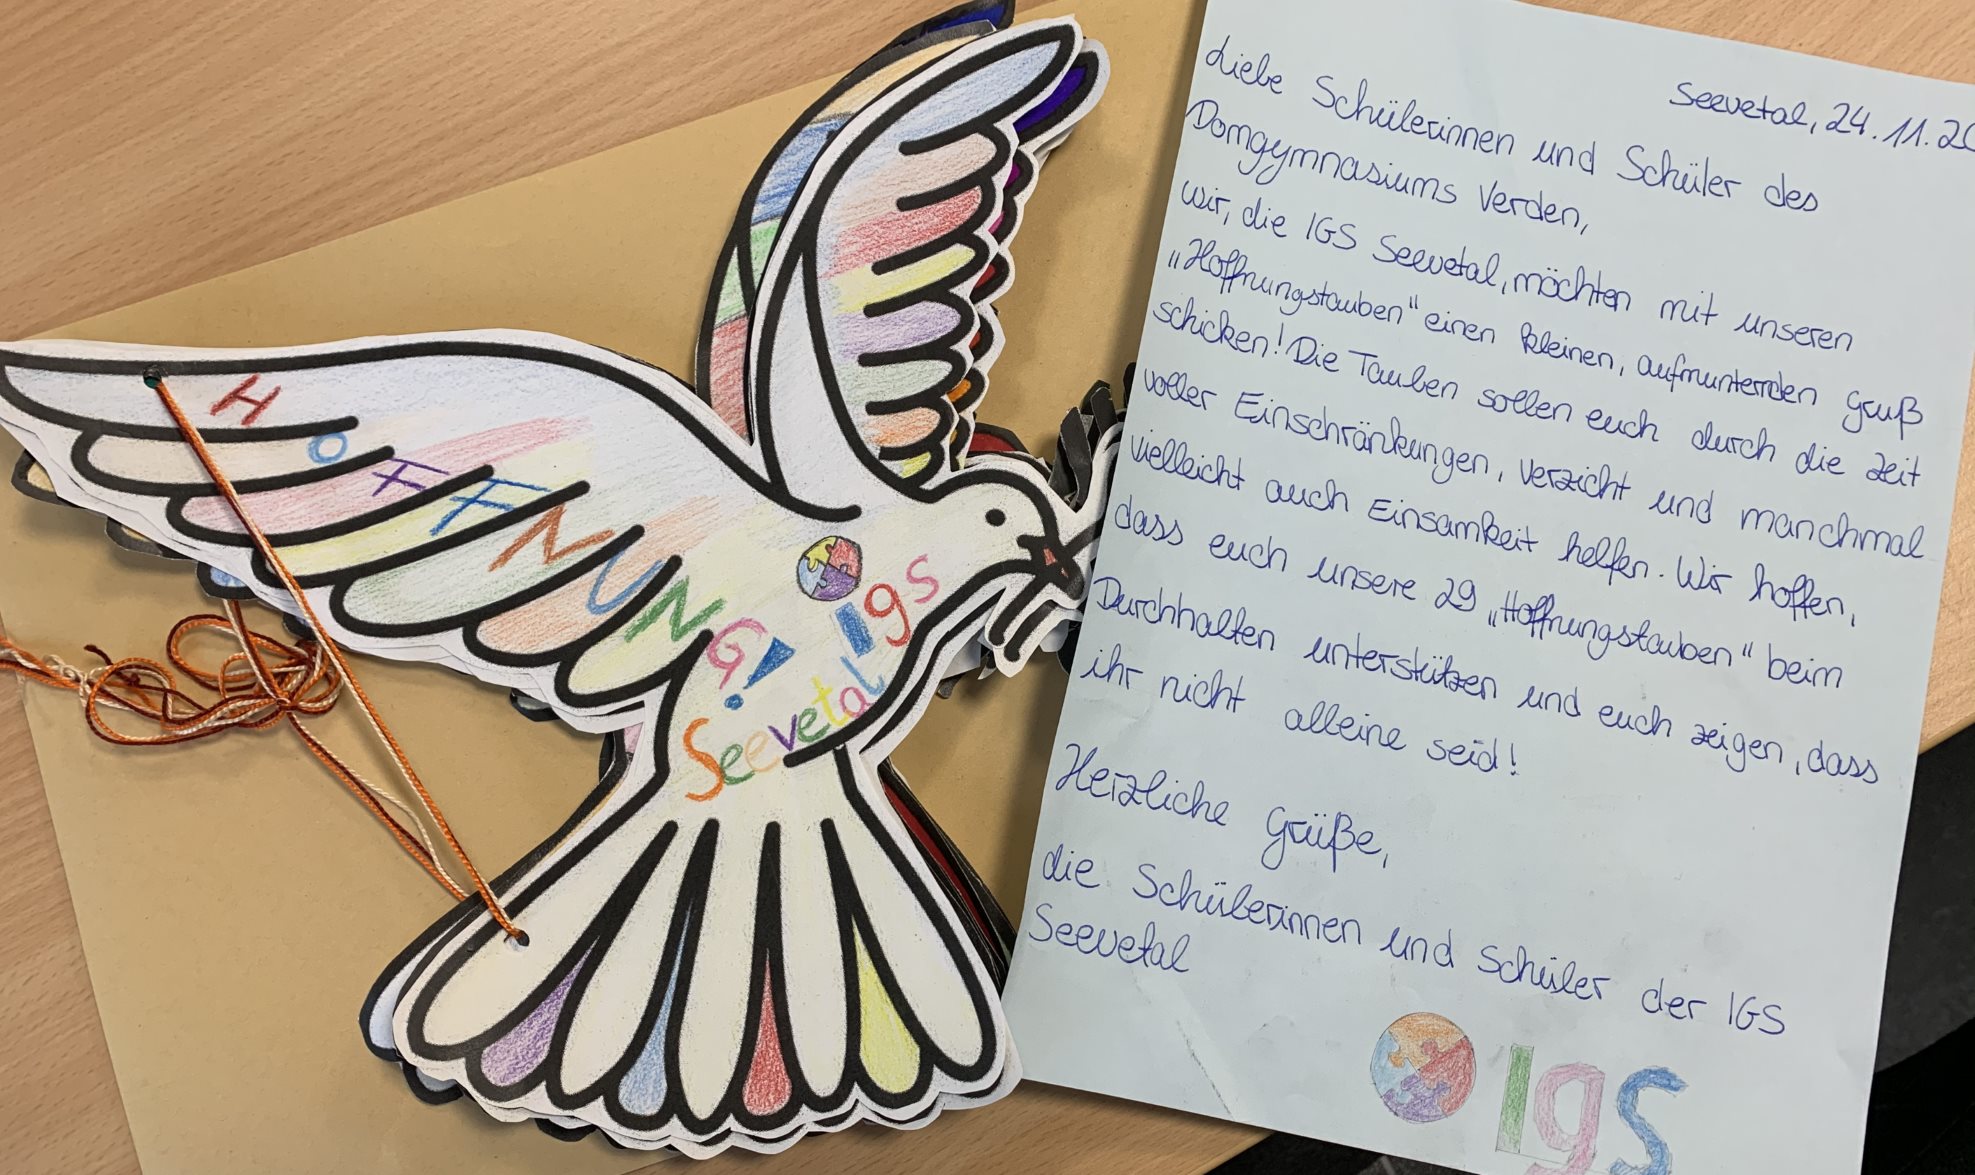 HOFFNUNG!
IGS
Seevetal
Seevetal, 24.11.20
Liebe Schülerinnen und Schüler des
Domgymnasiums Verden,
wir, die IGS Seevetal, möchten mit unseren
„Hoffnungstauben“ einen kleinen, aufmunternden Gruß
schicken! Die Tauben sollen euch durch die Zeit
voller Einschränkungen, Verzicht und manchmal
vielleicht auch Einsamkeit helfen. Wir hoffen,
dass euch unsere 29 „Hoffnungstauben“ beim
Durchhalten unterstützen und euch zeigen, dass
ihr nicht alleine seid!
Herzliche Grüße,
die Schülerinnen und Schüler der IGS
Seevetal
IGS